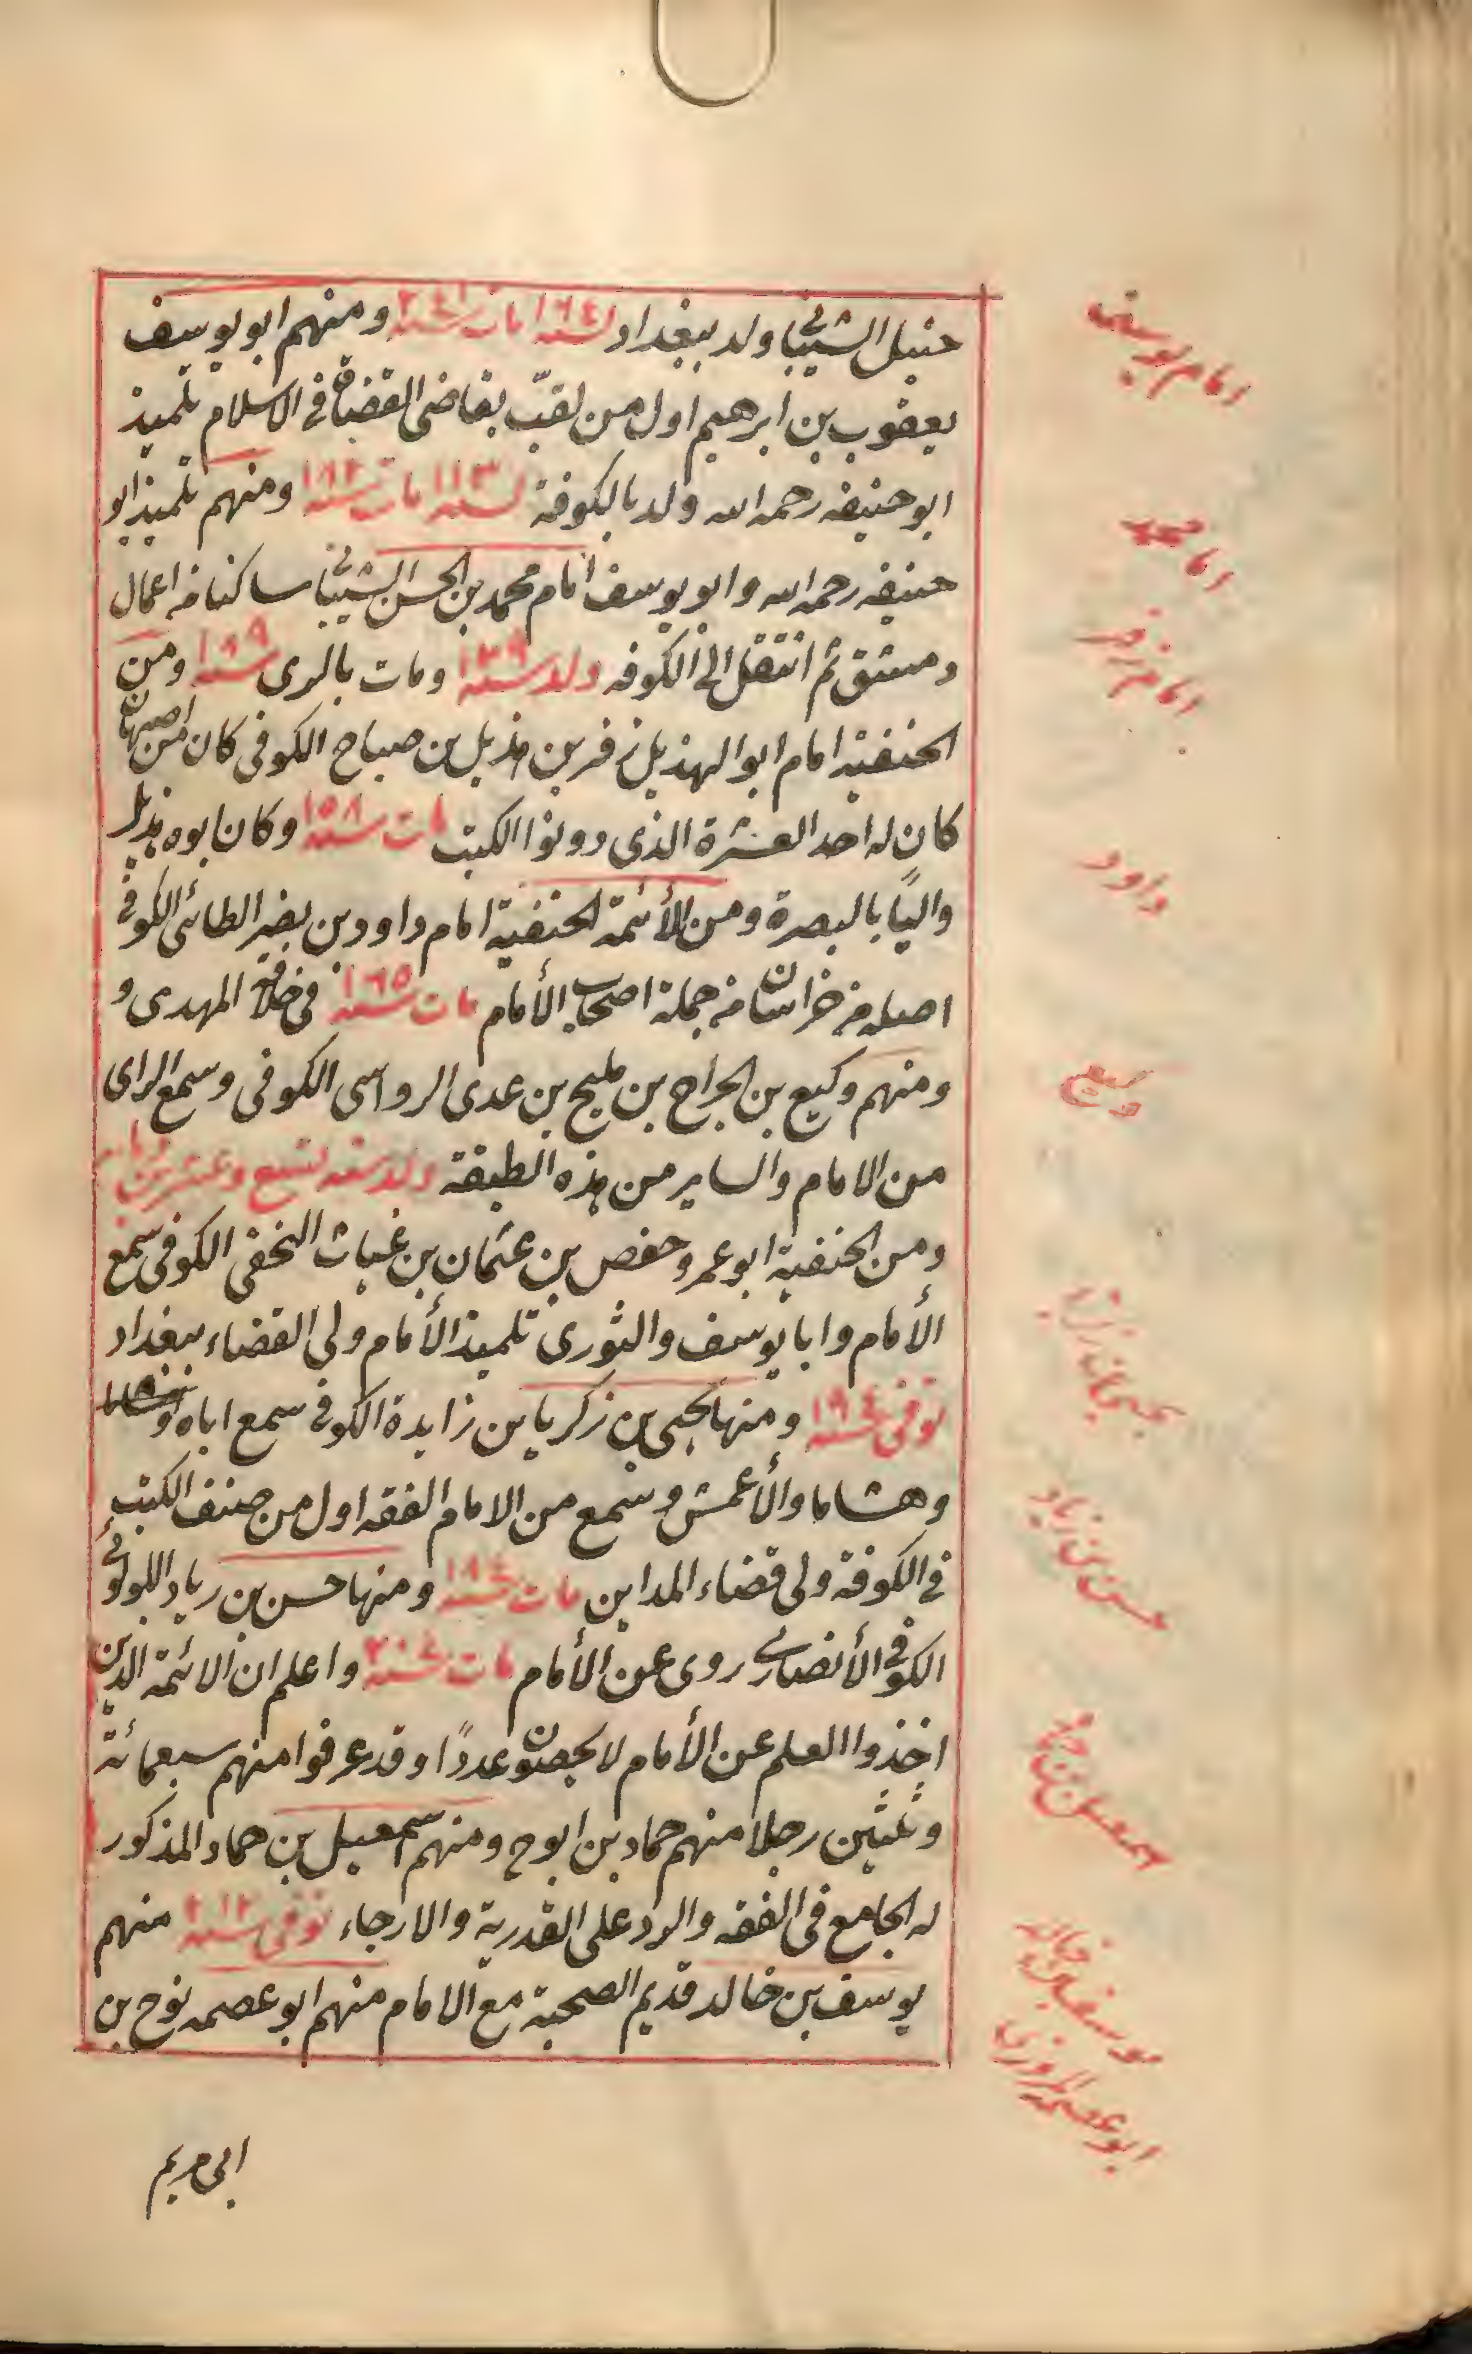 حنبل الشيباني ولد ببغداد لسنه ١٦٤ مات سنه ٢٤١ ومنهم ابو يوسف
يعقوب بن ابرهيم اول من لقّب بقاضى القضاة فى الاسلام تلميذ
ابو حنيفه رحمه الله ولد بالكوفة لسنه ١١٣ مات سنه ١٨٢ ومنهم تلميذ ابو
حنيفه رحمه الله وابو يوسف امام محمد بن الحسن الشيباني ساكنا من اعمال
دمشق ثم انتقل الى الكوفه ولد سنه ١٣٩ ومات بالرى سنه ١٨٩ ومن
الحنفية امام ابو الهذيل زفر بن هذيل بن صباح الكوفى كان من اصبهان
كان له احد العشرة الذى دونوا الكتب مات سنه ١٥٨ وكان ابوه هذيل
واليًا بالبصرة ومن الأئمة الحنفية امام داود بن بضر الطائى الكوفى
اصله من خراسان من جملة اصحاب الأمام مات سنه ١٦٥ فى خلافة المهدى و
ومنهم وكيع بن الجراح بن مليح بن عدى الرواسى الكوفى وسمع الراى
من الامام والساير من هذه الطبقة ولد سنه تسع وعشرين ومات
ومن الحنفية ابو عمرو حفص بن عثمان بن غياث النخفى الكوفى سمع
الأمام وابا يوسف والثورى تلميذ الأمام ولى القضاء ببغداد
توفى سنه ١٩٤ ومنها يحيى بن زكريا بن زايدة الكوفى سمع اباه
وهشاما والأعمش وسمع من الامام الفقه اول من صنف الكتب
فى الكوفة ولى قضاء المداين مات سنه ١٨٤ ومنها حسن بن زياد اللولوئى
الكوفى الأنصارى روى عن الأمام مات سنه ٢٠٤ واعلم ان الائمة الذين
اخذوا العلم عن الأمام لا يحصون عددًا وقد عرفوا منهم سبعمائة
وثلثين رجلا منهم حماد بن ابو ح ومنهم اسمعيل بن حماد المذكور
له الجامع فى الفقه والرد على القدرية والارجاء توفى سنه ٢١٢ منهم
يوسف بن خالد قديم الصحبة مع الامام منهم ابو عصمه نوح بن
ابى مريم
امام يوسف
امام محمد
امام زفر
داود
وكيع
حسن بن زياد
اسمعيل بن حماد
يوسف بن خالد
ابو عصمه المروزى